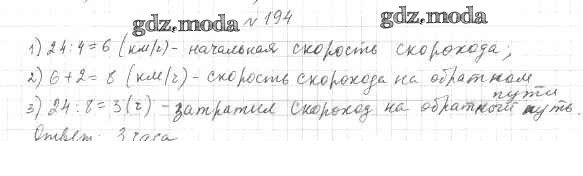 gdz.moda № 194 gdz.moda
1) 24:4=6 (км/ч) - начальная скорость скорохода;
2) 6+2=8 (км/ч) - скорость скорохода на обратном
пути
3) 24:8=3(ч) - затратил скороход на обратный путь.
Ответ: 3 часа